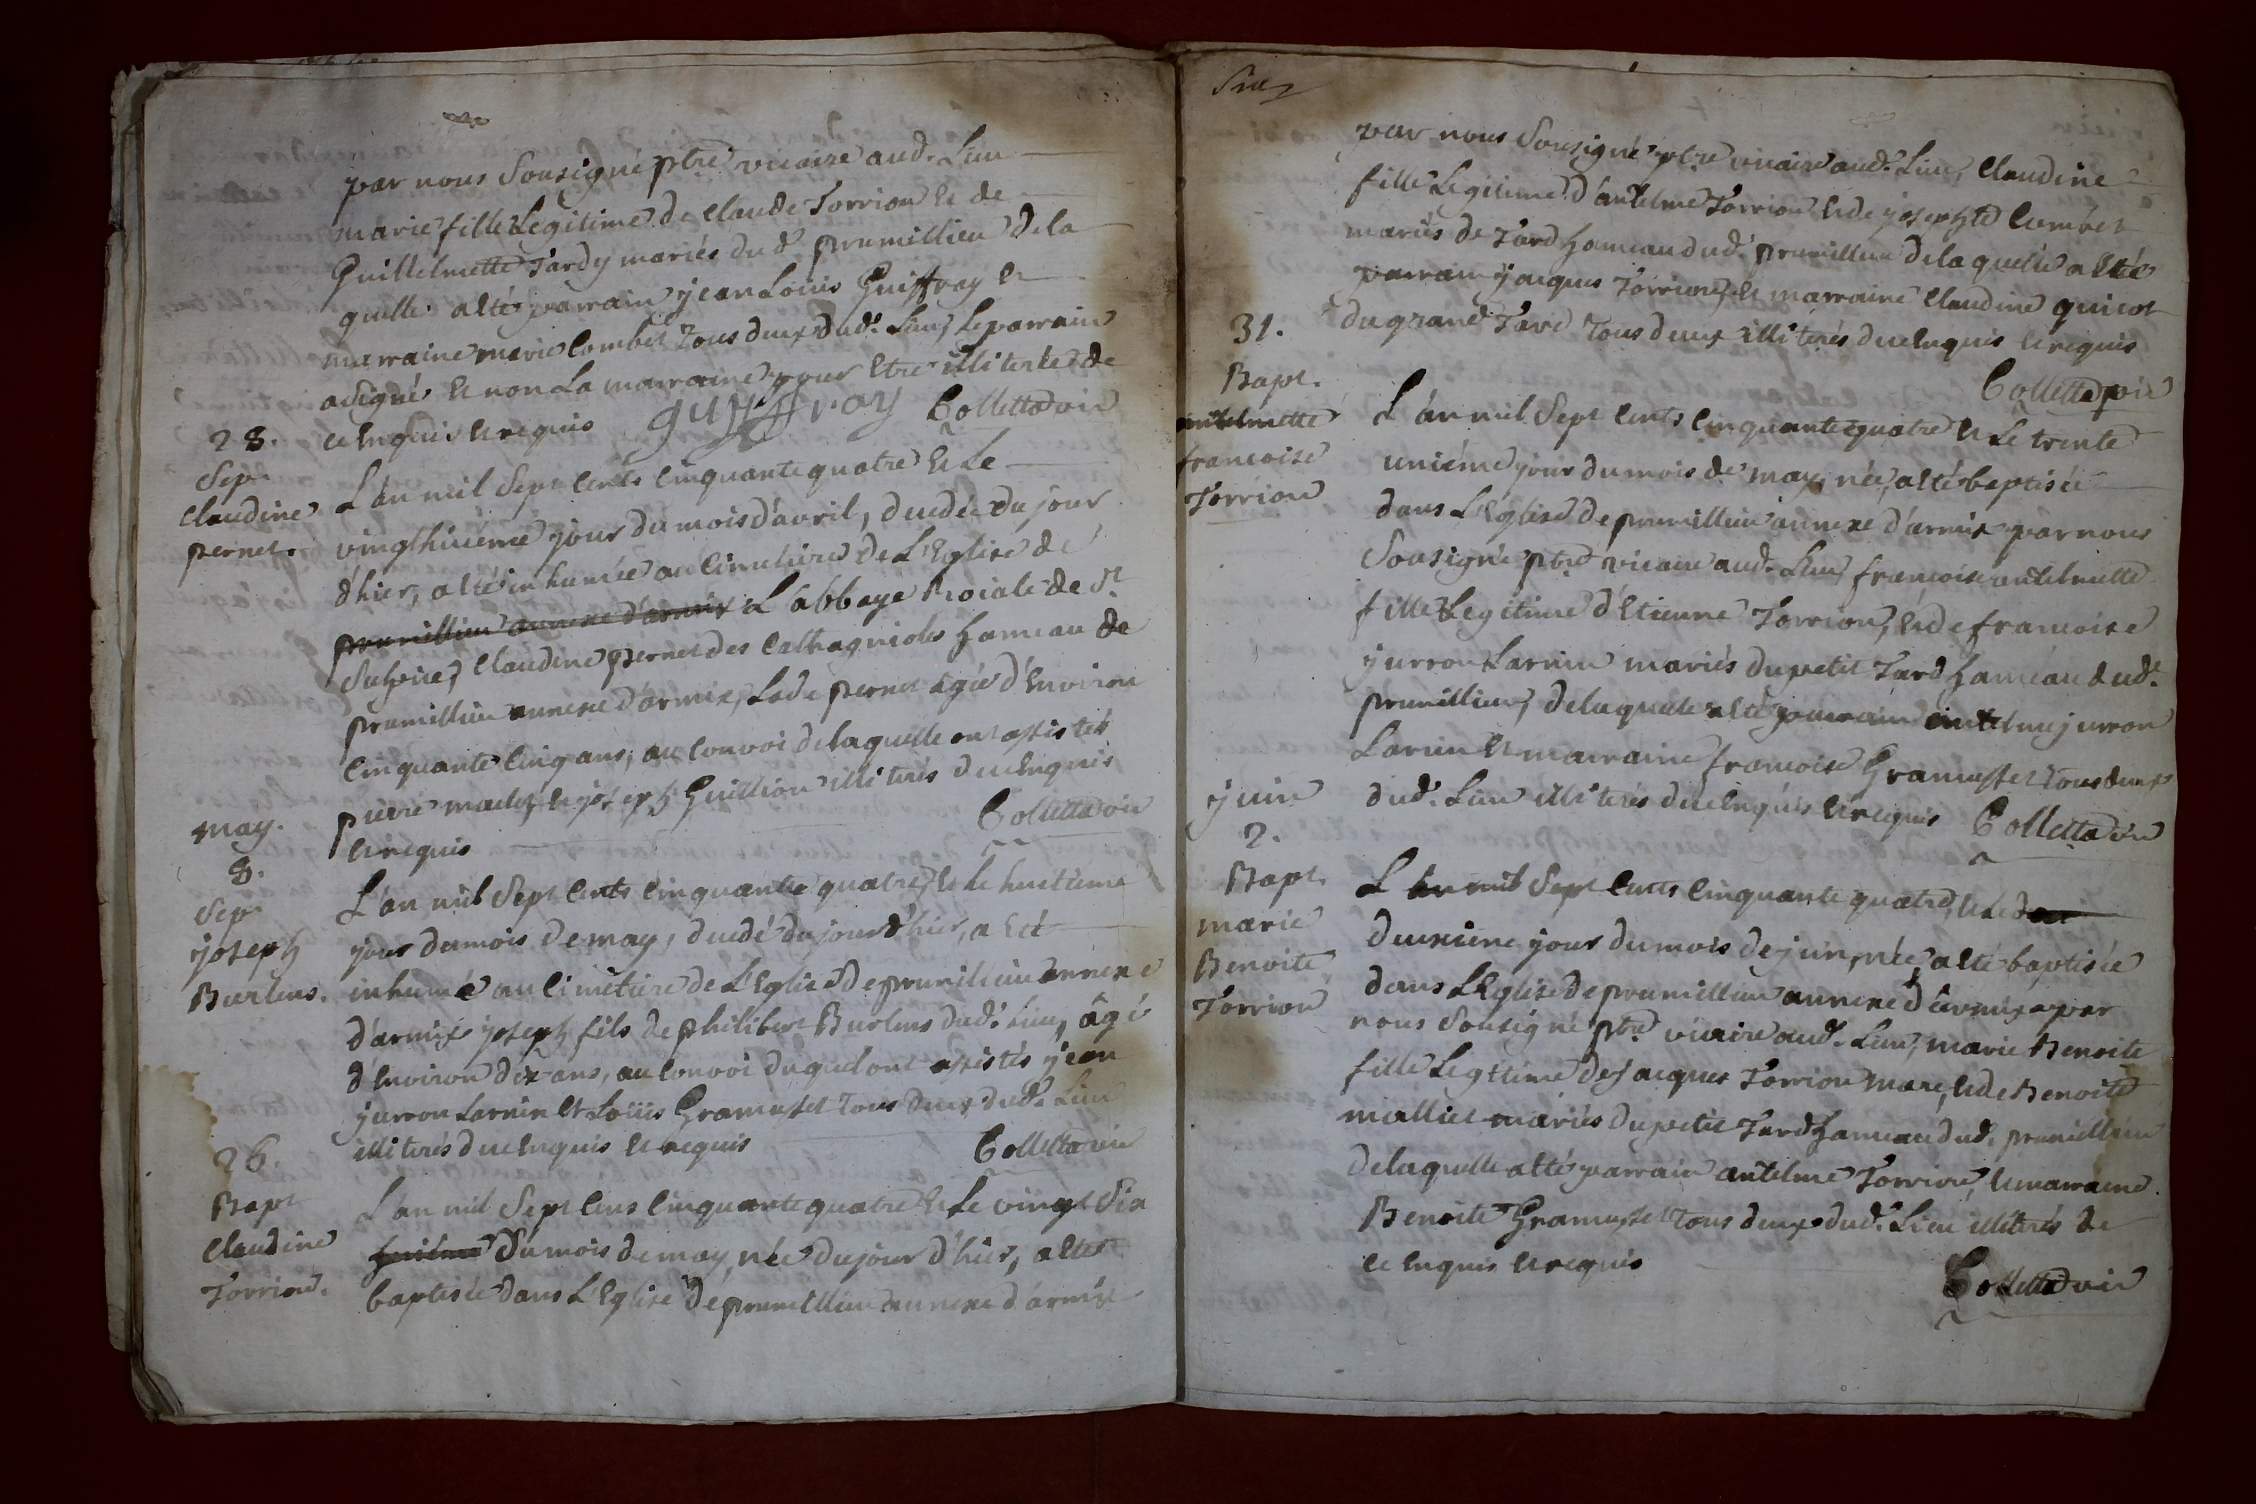 par nous Sousigné ptre vicaire aud. Lieu
marie fille Legitime de Claude Torrion et de
Guillelmette Tardy mariés dud. prumillieu de la
quelle a été parrain jean Louis Guiffray et
marraine marie Combet Tous deux dud. Lieu, Le parrain
a signé et non La marraine pour etre illiterée de
ce enquis et requis guyffray Colletta vic
28.
Sep.
Claudine
pernet.
L'an mil Sept Cents Cinquante quatre et Le
vingthuiéme jour du mois d'avril, decedée du jour
d'hier, a été inhumée au Cimetiere de L'Eglise de
prumillieu annexe d'armix L'abbaye Roiale de St.
Sulpice, Claudine pernet des Cathagnioles hameau de
prumillieu annexe d'armix, Lade pernet agée d'Environ
Cinquante Cinq ans, au Convoi de laquelle ont assistés
pierre et joseph Guillion illiterés de ce enquis
et requis Colletta vic
may.
8.
Sep.
joseph
Burlens.
L'an mil Sept Cents Cinquante quatre, et Le huitieme
jour du mois de may, decedé du jour d'hier, a Eté
inhumé au Cimetiere de L'Eglise de prumillieu annexe
d'armix joseph fils de philibert Burlens dud. Lieu, âgé
d'Environ dix ans, au Convoi duquel ont assistés jean
jurron Larnin et Loüis Gramusset Tous deux dud. Lieu
illiterés de ce enquis et requis Colletta vic
26.
Bapt
Claudine
Torrion.
L'an mil Sept Cens Cinquante quatre et Le vingt Six
huiéme du mois de may, née du jour d'hier, a été
baptisée dans L'Eglise de prumillieu annexe d'armix
par nous Sousigné ptre vicaire aud. Lieu, Claudine
fille Legitime d'antelme Torrion et de josephte Combet
mariés de Tard hameau dud. prumillieu de laquelle a été
parrain jacques Torrion, et marraine Claudine quicot
du grand Tard Tous deux illiterés de ce enquis et requis
Colletta vic
31.
Bapt.
antelmette
francoise
Torrion
L'an mil Sept Cents Cinquante quatre et Le trente
uniéme jour du mois de may, née, a été baptisée
dans L'Eglise de prumillieu annexe d'armix par nous
Sousigné ptre vicaire aud. Lieu, francoise antelmette
fille Legitime d'Etienne Torrion, et de francoise
jurron Larnin mariés du petit Tard hameau dud.
prumillieu, de laquelle a été parrain antelme jurron
Larnin et marraine francoise Gramusset Tous deux
dud. Lieu illiterés de ce enquis et requis Colletta vic
juin
2.
Bapt.
marie
Benoite
Torrion
L'an mil Sept Cents Cinquante quatre, et Le
deuxiéme jour du mois de juin, née, a été baptisée
dans L'Eglise de prumillieu annexe d'armix par
nous Sousigné ptre vicaire aud. Lieu, marie Benoite
fille Legitime de jacques Torrion mare, et de Benoite
malliet mariés du petit Tard hameau dud. prumillieu
de laquelle a été parrain antelme Torrion, et marraine
Benoite Gramusset Tous deux dud. Lieu illiterés de
ce enquis et requis
Colletta vic